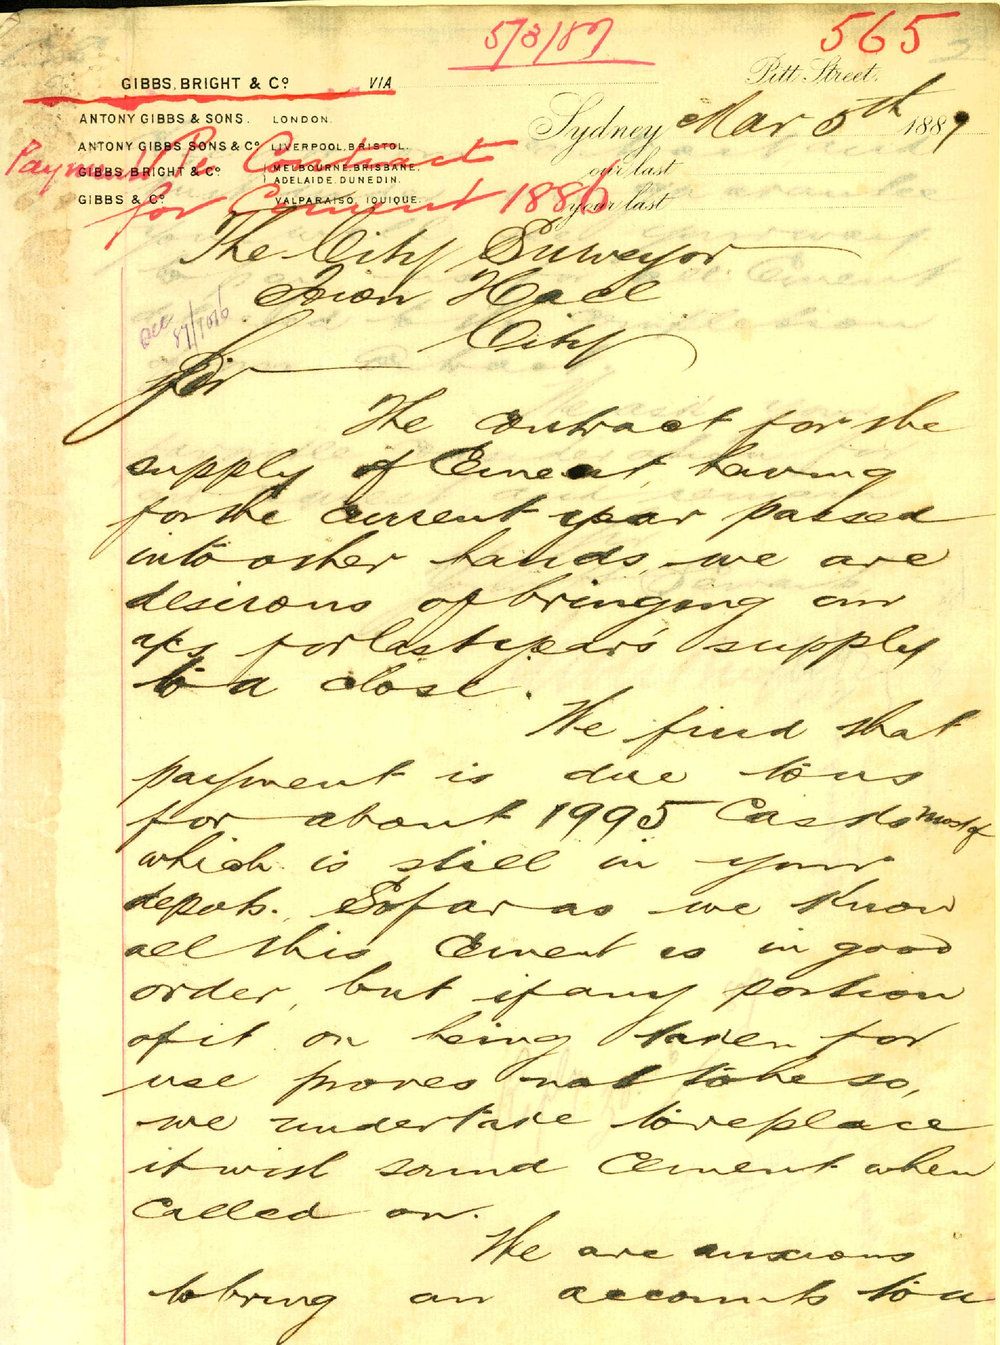 5/3/87
565
GIBBS, BRIGHT & Co. VIA
Pitt Street.
ANTONY GIBBS & SONS. LONDON.
Sydney Mar 5th 1887
ANTONY GIBBS SONS & Co. LIVERPOOL. BRISTOL.
Payment Re Contract
our last
GIBBS, BRIGHT & Co. MELBOURNE. BRISBANE.
ADELAIDE. DUNEDIN.
GIBBS & Co. VALPARAISO. IQUIQUE.
for Cement 1886
your last
The City Surveyor
Town Hall
City
87/1016
Sir
The contract for the
supply of Cement, having
for the current year passed
into other hands, we are
desirous of bringing our
a/cs for last year's supply
to a close.
We find that
payment is due to us
for about 1995 Casks most of
which is still in your
depots. So far as we know
all this Cement is in good
order, but if any portion
of it on being taken for
use proves not to be so,
we undertake to replace
it with sound cement when
called on.
We are anxious
to bring our accounts to a